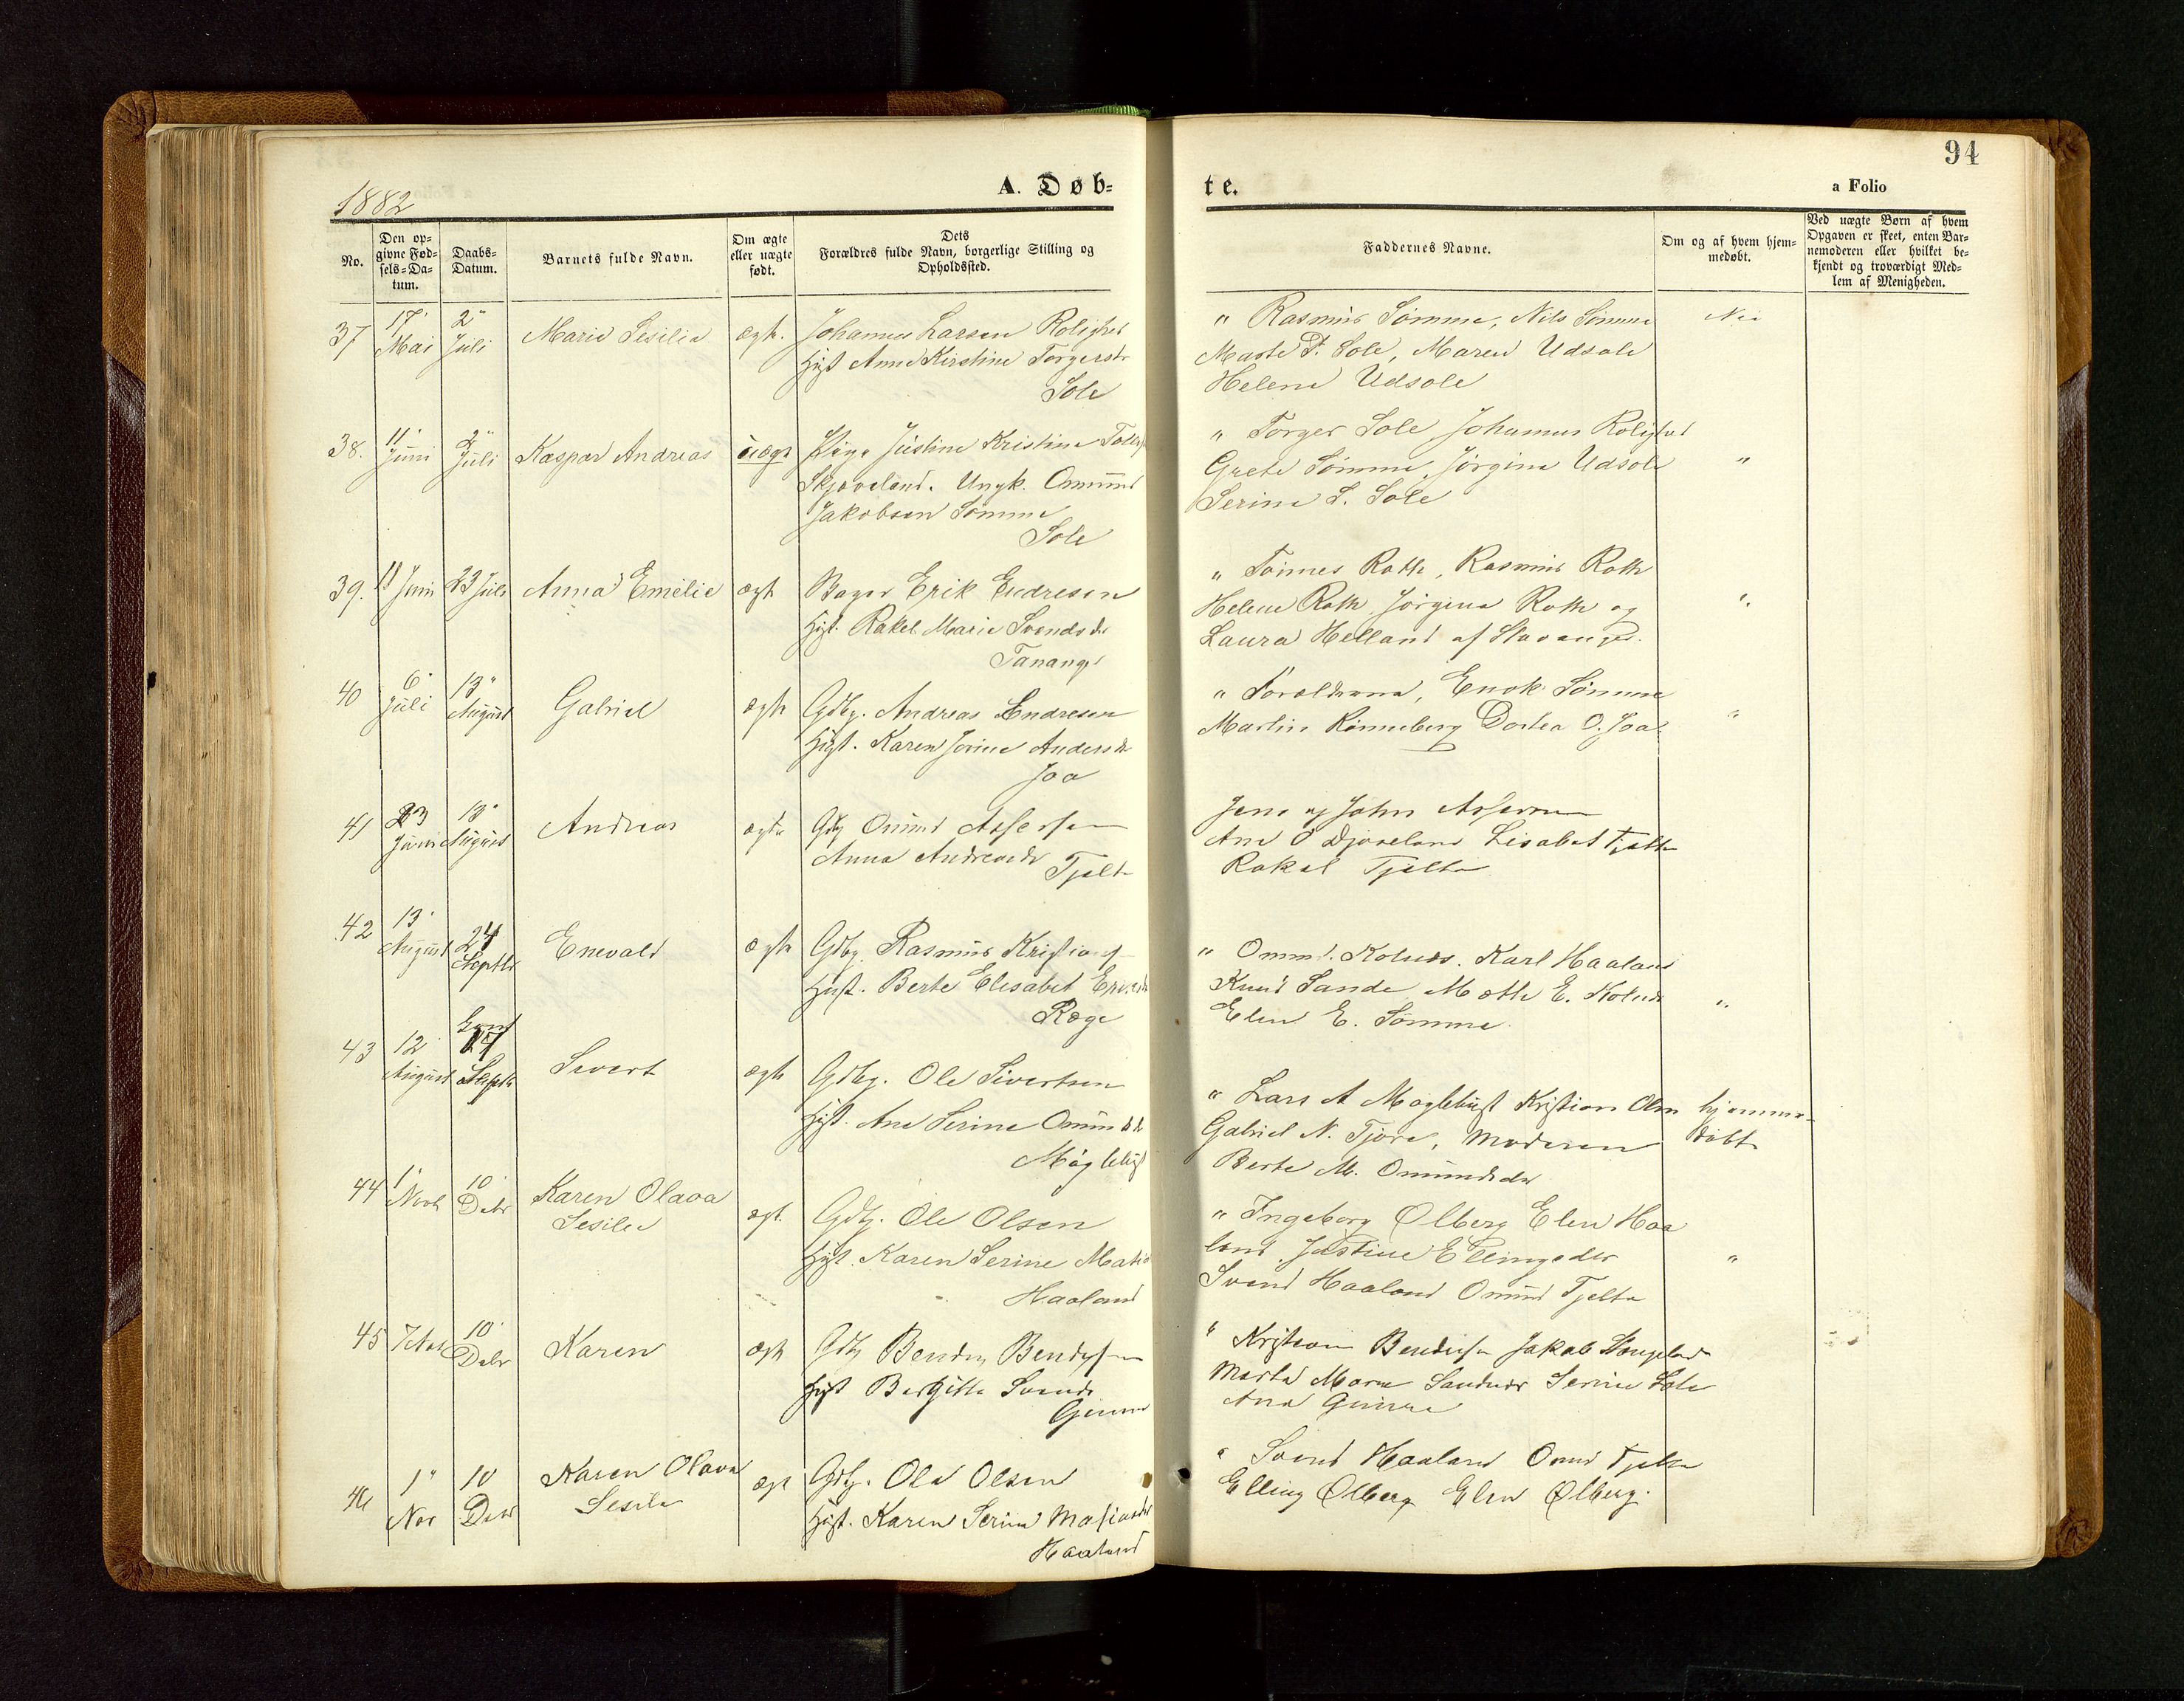 94
1882
A. Døb-
te.
a Folio
No.
Den op-
givne Fød-
sels-Da-
tum.
Daabs-
Datum.
Barnets fulde Navn.
Om ægte
eller uægte
født.
Dets
Forældres fulde Navn, borgerlige Stilling og
Opholdssted.
Faddernes Navne.
Om og af hvem hjem-
medøbt.
Ved uægte Børn af hvem
Opgaven er skeet, enten Bar-
nemoderen eller hvilket be-
kjendt og troværdigt Med-
lem af Menigheden.
37
17
Mai
2"
Juli
Marie Sesilie
ægt.
Johannes Larsen Rolighed
Hust Anne Kirstine Torgersdr
Sole
" Rasmus Sømme, Nils Sømme
Marte T. Sole, Maren Udsole
Helene Udsole
Nei
38.
11
Juni
2"
Juli
Kaspar Andreas
uægt
Pige Justine Kristine
Skjæveland. Ungk. Omund
Jakobsen Sømme
Sole
" Torger Sole Johannes Rolighed
Grete Sømme, Jørgine Udsole
Serine L. Sole
"
39.
11 Juni
23 Juli
Anna Emilie
ægt
Bager Erik Endresen
Hust. Rakel Marie Svendsdr
Tananger
" Tønnes Roth, Rasmus Roth
Helene Roth Jørgine Roth og
Laura Helland af Stavanger.
"
40
6"
Juli
13"
August
Gabriel
ægte
Gdbg. Andreas Endresen
Hust. Karen Jorine Andersdr
Joa
" Forældrene, Enok Sømme
Martin Rønneberg Dortea O. Joa
"
41
23
Juni
13"
August
Andreas
ægte
Gdbg Omund Assersen
Anna Andreasdr
Tjelte
Jens og John Assersen
Ane O Skjæveland Lisabet Tjelta
Rakel Tjelta
42
13"
August
24
Septbr
Enevald
ægte
Gdbg. Rasmus Kristians
Hust. Berte Elisabet
Ræge
" Omund Kolnes. Karl Haaland
Knud Sande Mette E. Kolnes
Elen E. Sømme
"
43
12
August
Septbr
Sivert
ægte
Gdbg. Ole Sivertsen
Hust. Ane Serine Omundsdr
" Lars A Mæglehust Kristian
Gabriel N. Tjora, Moderen
Berte M. Omundsdr
hjemme-
døbt
44
1"
Novb
10"
Debr
Karen Olava
Sesilie
ægt.
Gdbg. Ole Olsen
Hust. Karen Serine
Haaland
" Ingeborg Ølberg Elen Haa
land Justine Ellingsdr
Svend Haaland Omund Tjelta
"
45
10"
Debr
Karen
ægte
Gdbg
Hust Bergitte
" Kristian Jakob
Marta Serine Sole
Ana
46
1"
Nov
10
Debr
Karen Olava
Sesilie
ægt
Gdbg. Ole Olsen
Hust. Karen Serine Matiasdr
Haaland
" Svend Haaland Omund Tjelta
Elling Ølberg Elen Ølberg.